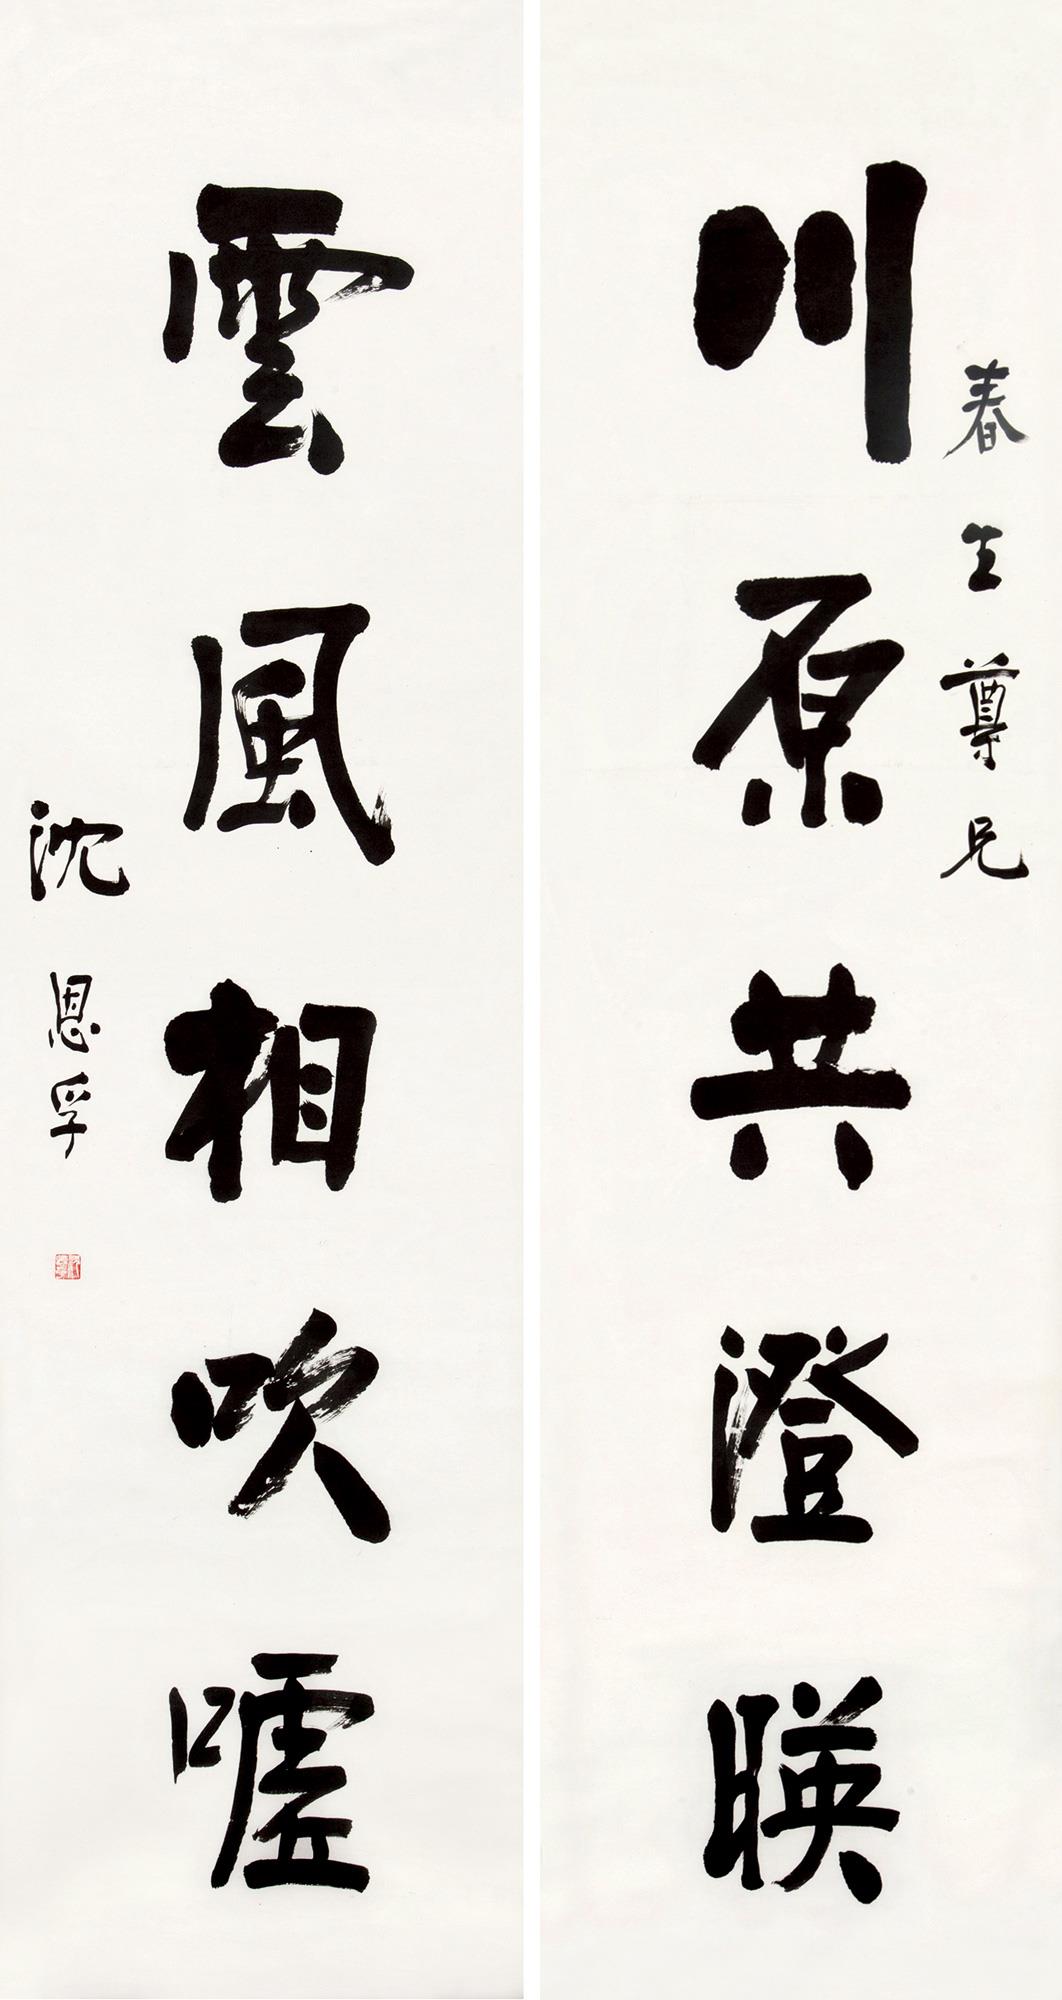 春生尊兄
川原共澄暎
雲風相吹嘘
沈恩孚